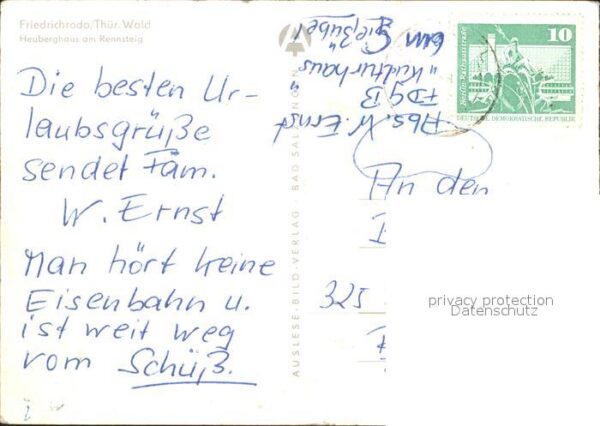 Friedrichroda/Thür. Wald
Heuberghaus am Rennsteig
Die besten Ur-
laubsgrüße
sendet Fam.
W. Ernst
Man hört keine
Eisenbahn u.
ist weit weg
vom Schüß.
AUSLESE-BILD-VERLAG · BAD SALZUNGEN
Abs. W. Ernst
FDGB
"Kulturhaus"
Gießübel
10
Berlin, Rathausstraße
DEUTSCHE DEMOKRATISCHE REPUBLIK
An den
325
privacy protection
Datenschutz